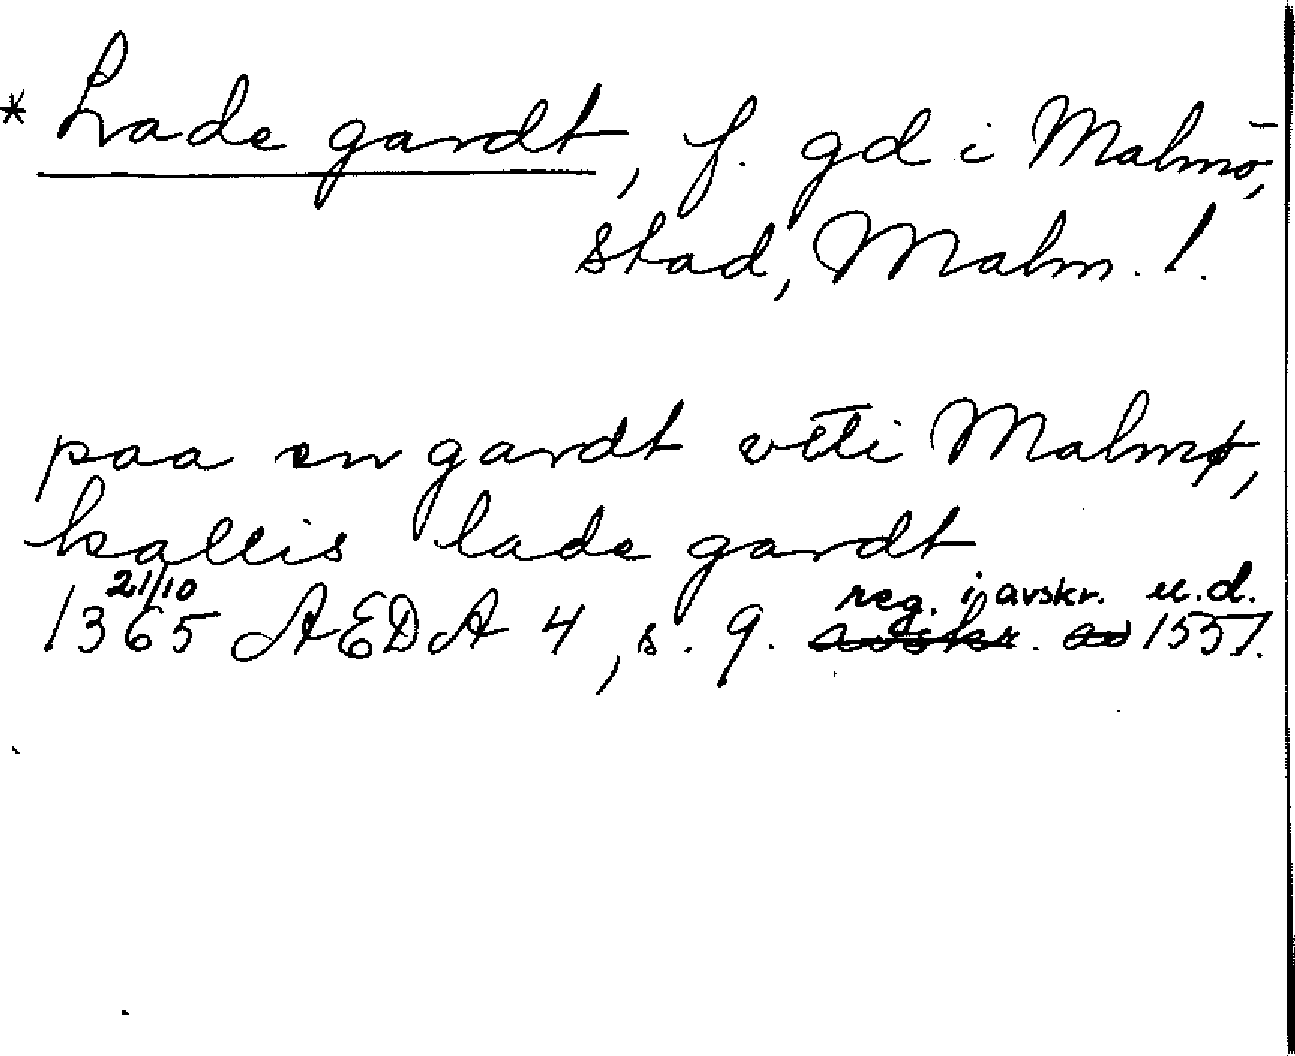 * Lade gardt, f. gd i Malmö,
stad, Malm. l.
paa en gardt vti Malmø,
kallis lade gardt
21/10 reg. i avskr. u.d.
1365 AEDA 4, s. 9. avskr. av 1557.